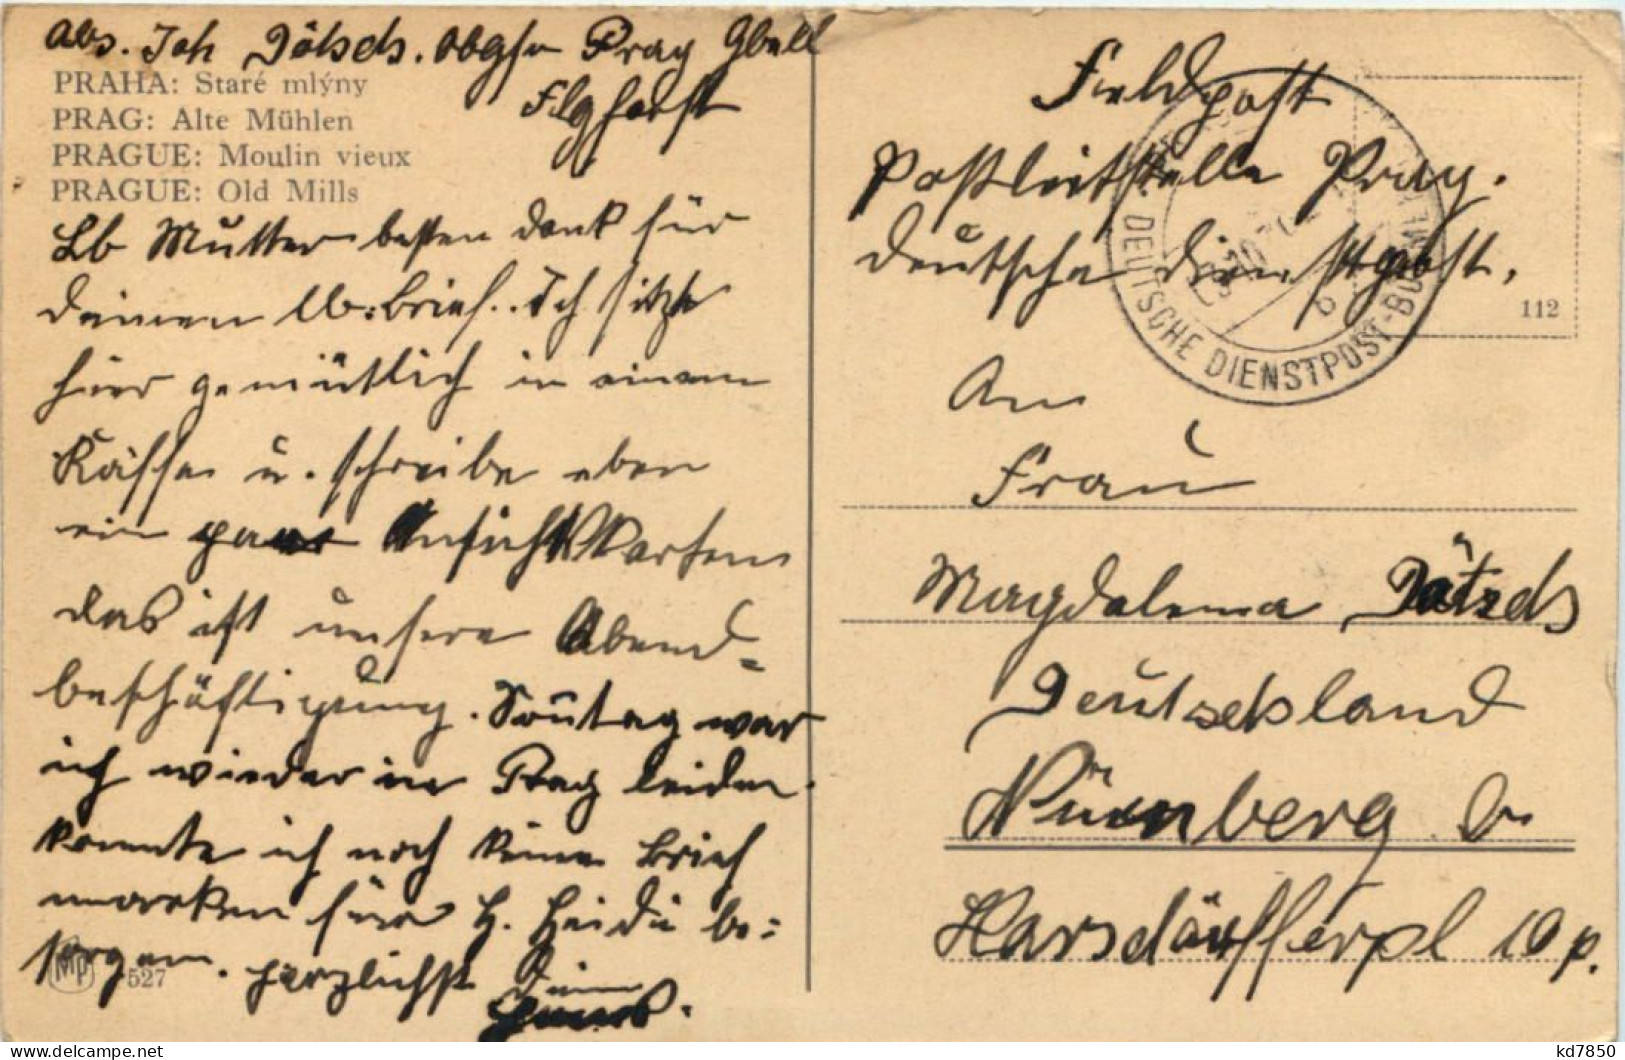 Abs. Joh Dötsch. Obgfr Prag Gbell
Flghorst
PRAHA: Staré mlýny
PRAG: Alte Mühlen
PRAGUE: Moulin vieux
PRAGUE: Old Mills
Lb Mutter besten Dank für
deinen lb: Brief.. Ich sitze
hier gemütlich in einem
Kaffee u. schreibe eben
ein paar Ansichtkarten
das ist unsere Abend=
beschäftigung. Sontag war
ich wieder in Prag leider
konnte ich noch keine Brief
marken für H. Heidi be=
sorgen. herzlichst Dein
Hans.
Mp 527
Feldpost
Postleitstelle Prag.
Deutsche Dienstpost.
DEUTSCHE DIENSTPOST-BÖHMEN
b
112
An
Frau
Magdalena Dötsch
Deutschland
Nürnberg O
Harsdörfferpl 10 p.
kd7850